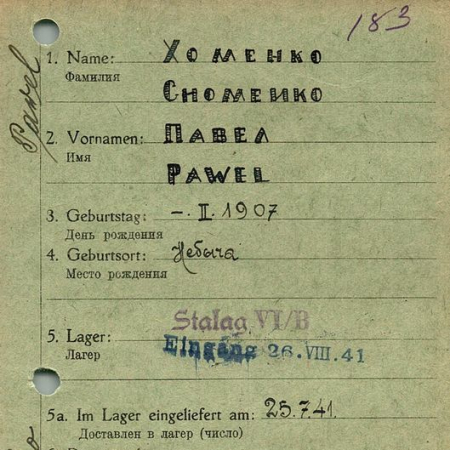 183
Pavel
1. Name: ХОМЕНКО
Фамилия
CHOMENKO
2. Vornamen: ПАВЕЛ
Имя
PAWEL
3. Geburtstag: –. II. 1907
День рождения
4. Geburtsort:
Место рождения
Stalag VI/B
5. Lager: Eingang 26. VIII. 41
Лагер
5a. Im Lager eingeliefert am: 25.7.41.
Доставлен в лагер (число)